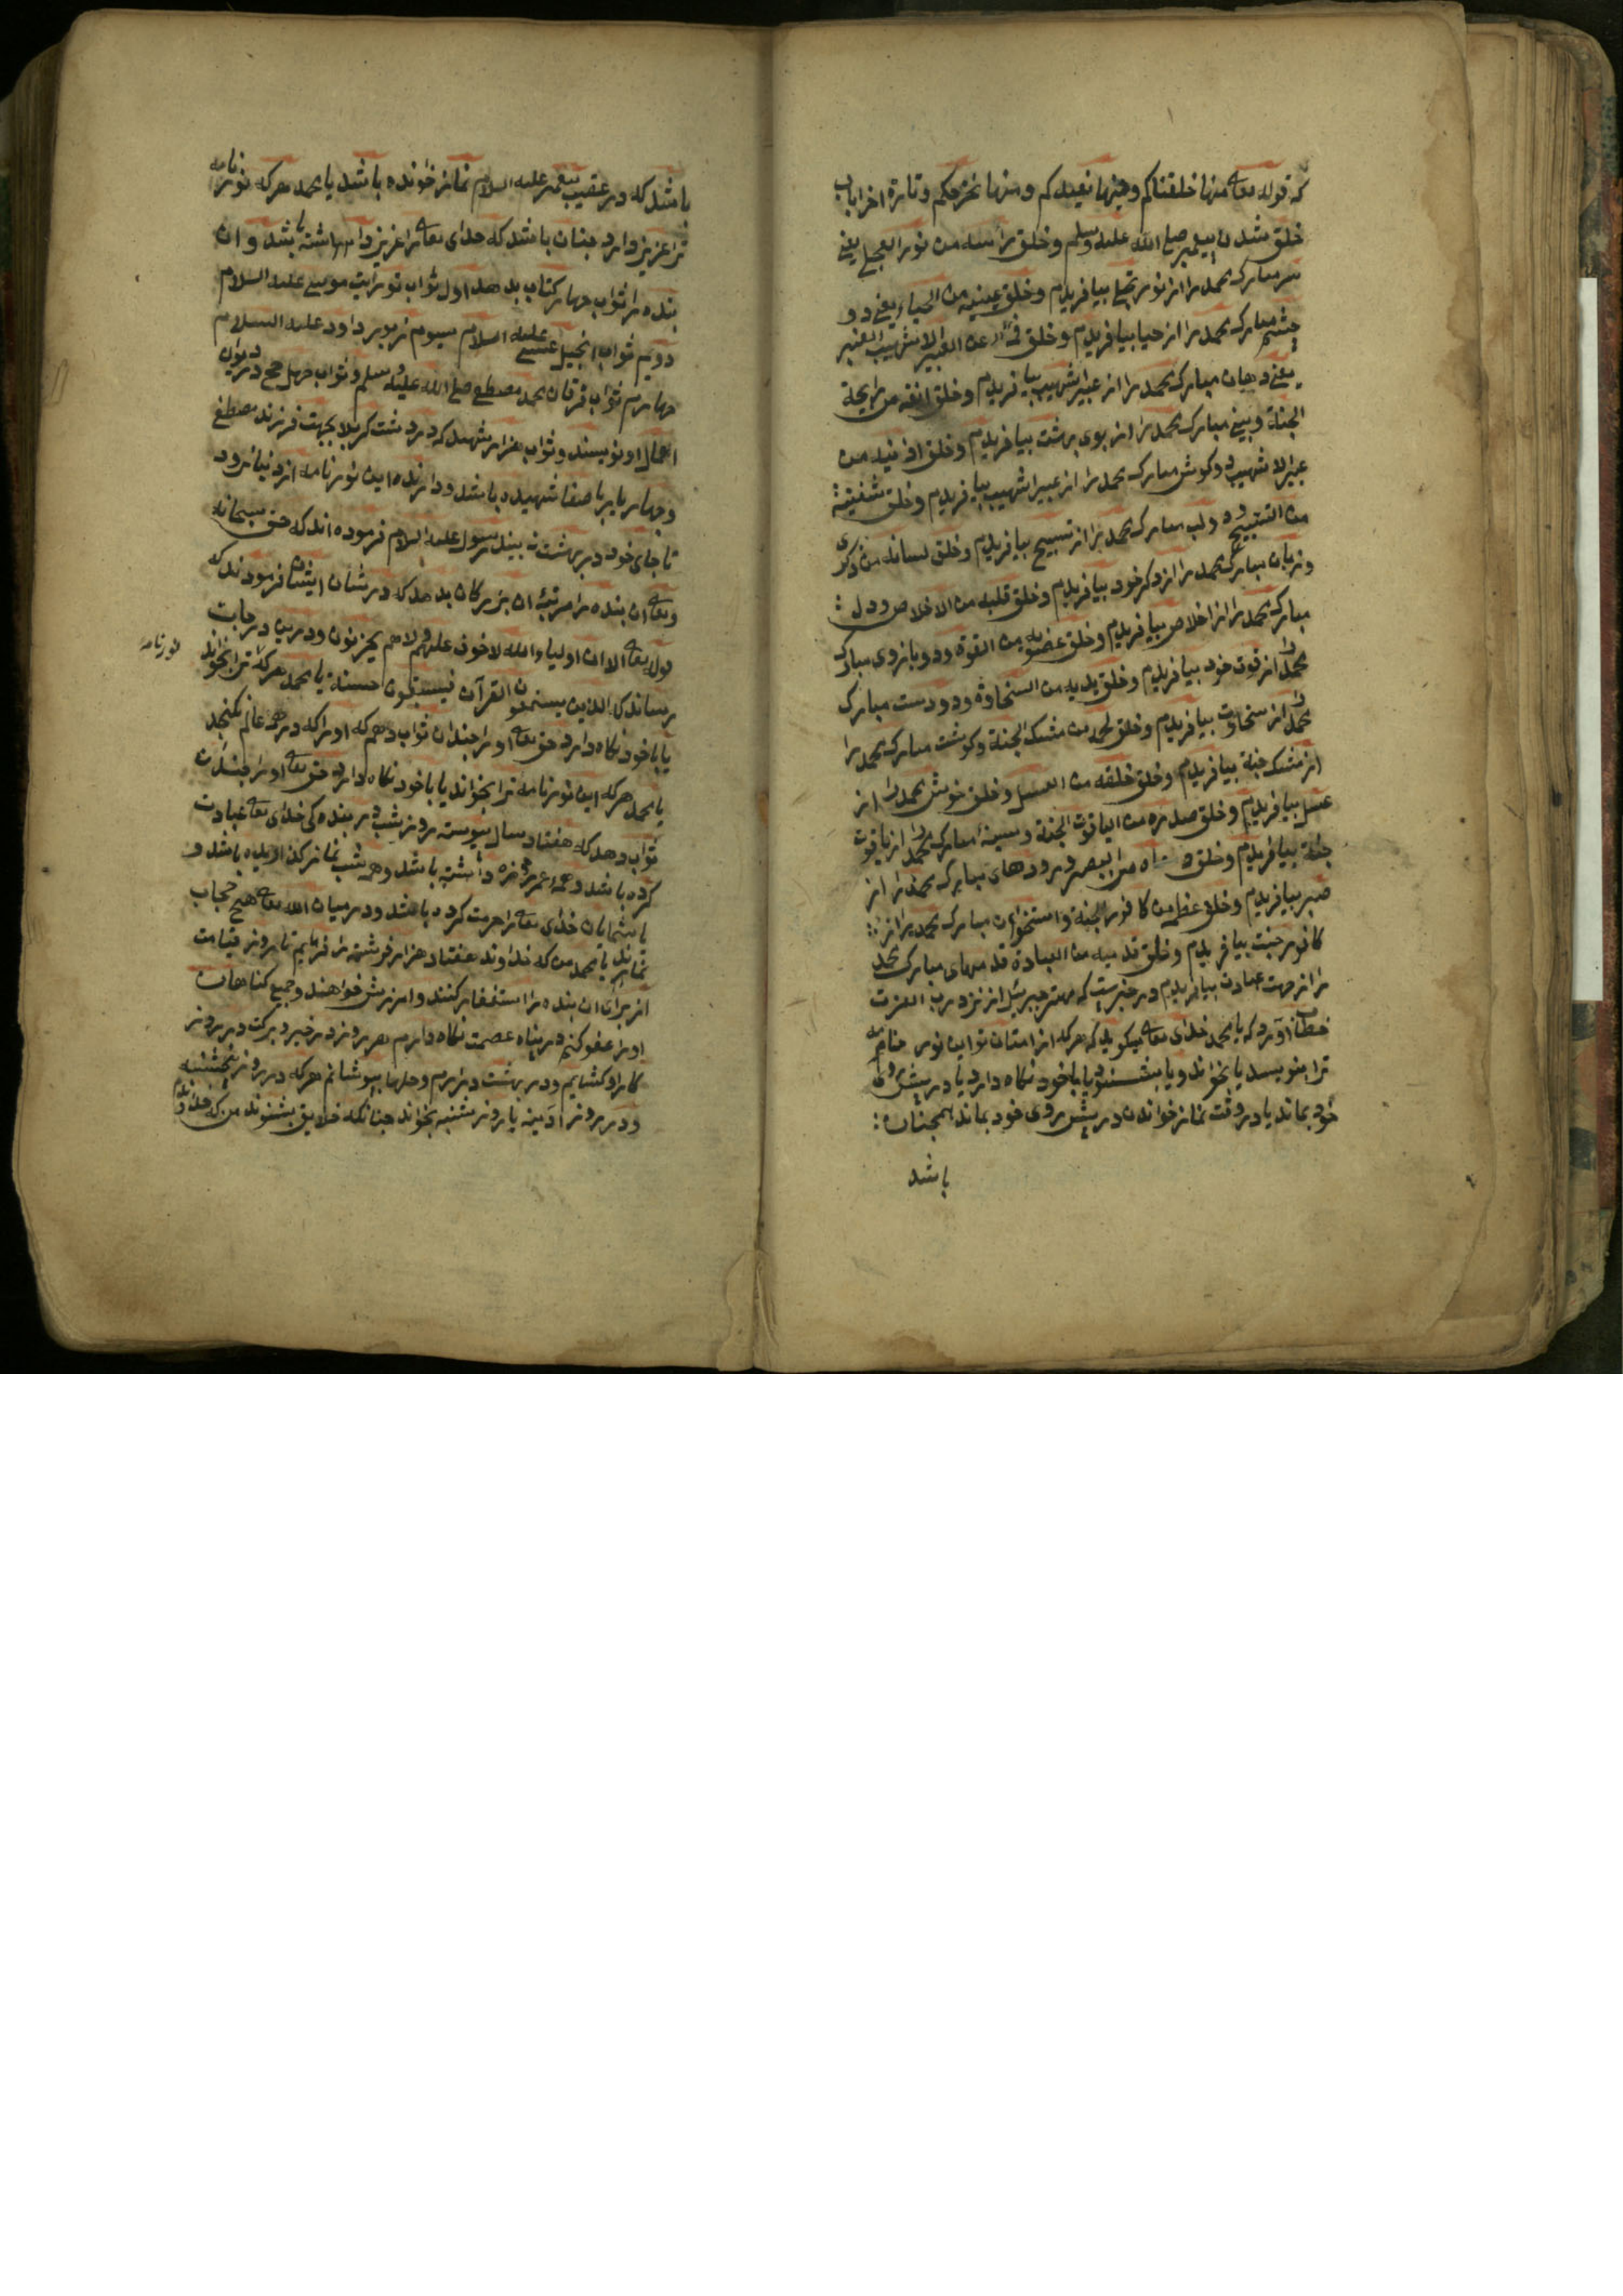 که قوله تعالی منها خلقناکم وفیها نعیدکم ومنها نخرجکم وتارة اخرا باب
خلق شدن پیغمبر صلی الله علیه وسلم وخلق راسه من نور العجلی یعنی
سر مبارک محمد را از نور تجلی بیافریدم وخلق عینیه من الحیاء یعنی دو
چشم مبارک محمد را از حیا بیافریدم وخلق من العبیر الاشهیب العنبر
یعنی دهان مبارک محمد را از عبیر اشهیب بیافریدم وخلق انفه من رایحة
الجنة وبینی مبارک محمد را از بوی بهشت بیافریدم وخلق اذنیه من
عبیر الاشهیب ودو کوش مبارک محمد را از عبیر اشهیب بیافریدم وخلق شفتیه
من التسبیح ودو لب مبارک محمد را از تسبیح بیافریدم وخلق لسانه من ذکری
وزبان مبارک محمد را از ذکر خود بیافریدم وخلق قلبه من الاخلاص ودل
مبارک محمد را از اخلاص بیافریدم وخلق عضدیه من القوة ودو بازوی مبارک
محمد را از قوت خود بیافریدم وخلق یدیه من السخاوة ودو دست مبارک
محمد را از سخاوت بیافریدم وخلق لحمه من مشک الجنة وکوشت مبارک محمد را
از مشک جنة بیافریدم وخلق خلقه من العسل وخلق خوش محمد را از
عسل بیافریدم وخلق صدره من الیاقوت الجنة وسینهٔ مبارک محمد را از یاقوت
جنة بیافریدم وخلق من الصبر ورودهای مبارک محمد را از
صبر بیافریدم وخلق عظمه من کافور الجنة واستخوان مبارک محمد را از
کافور جنت بیافریدم وخلق قدمیه من العبادة قدمهای مبارک محمد
را از جهت عبادت بیافریدم ودر خبرست که مهتر جبرئیل از نزد رب العزت
خطاب آورد که یا محمد خدای تعالی میکوید که هرکه از امتان تو این نور نامه
ترا بنویسد یا بخواند ویا بشنود یا با خود نکاه دارد یا در پیش روی
خود بماند یا در وقت نماز خواندن در پیش روی خود بماند همچنان
باشد
باشد که در عقب پیغمبر علیه السلام نماز خوانده باشد یا محمد هرکه نورنامه
ترا عزیز دارد چنان باشد که خدای تعالی را عزیز داشته باشد وان
بنده را ثواب چهار کتاب بدهد اول ثواب توریت موسی علیه السلام
دویم ثواب انجیل عیسی علیه السلام سیوم زبور داود علیه السلام
چهارم ثواب فرقان محمد مصطفی صلی الله علیه وسلم وثواب چهل حج در دیوان
اعمال او نویسند وثواب هزار شهید که در دشت کربلا بجهت فرزند مصطفی
وچهار یار باصفا شهید باشد ودارنده این نورنامه از دنیا نرود
تا جای خود در بهشت نه بیند رسول علیه السلام فرموده اند که حق سبحانه
وتعالی ان بنده را مرتبهٔ ان بزرکان بدهد که در شان ایشان فرمودند که
قوله تعالی الا ان اولیاء الله لا خوف علیهم ولا هم یحزنون ودرین درجات
رساند که الذین یستمعون القرآن فیستبقون حسنة یا محمد هرکه ترا بخواند
نورنامه
یا با خود نکاه دارد حق تعالی او را چندان ثواب دهم که او را که در همه عالم نکنجد
یا محمد هرکه این نورنامه ترا بخواند یا با خود نکاه دارد حق تعالی او را چندان
ثواب دهد که هفتاد سال پیوسته روز وشب در بندکی خدای تعالی عبادت
کرده باشد وهمه عمر روزه داشته باشد وهمه شب نماز کذاریده باشد و
باشمایان خدای تعالی را حرمت کرده باشد ودر میان الله تعالی هیچ حجاب
نماند یا محمد من که خداوند هفتاد هزار فرشته را فرمایم تا روز قیامت
از برای ان بنده را استغفار کنند وامرزش خواهند وجمیع کناهان
او را عفو کنم ودر پناه عصمت نکاه دارم هر روز در خیر وبرکت در روز
کار او کشایم ودر بهشت درارم وحلها بپوشانم هرکه در روز پنجشنبه
ودر روز ادینه یا روز شنبه بخواند چنانکه خلایق بشنوند من که خداوندم